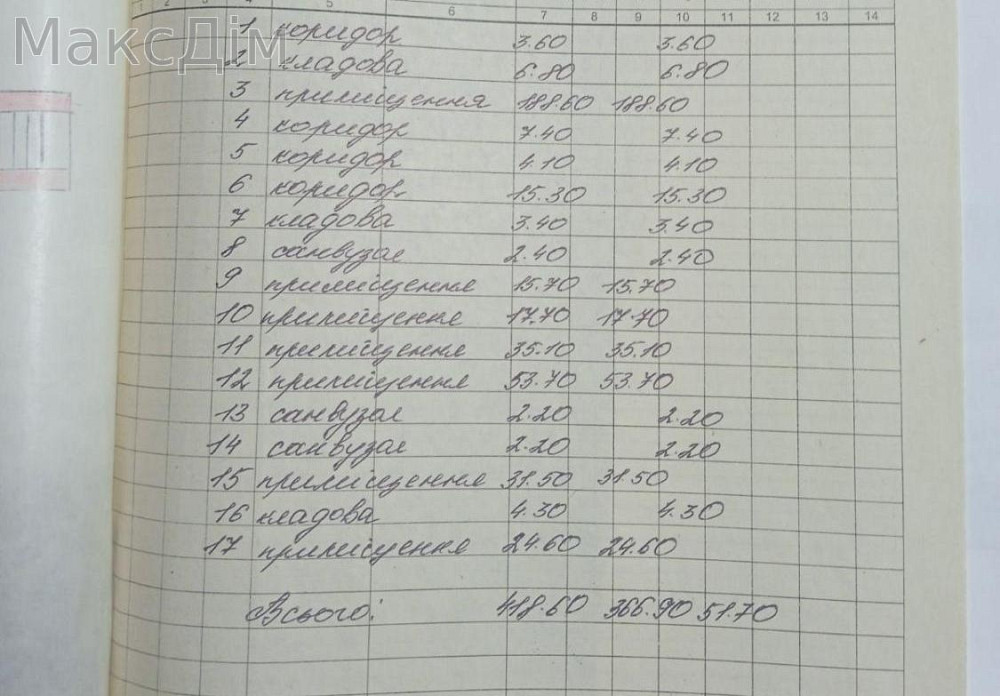 1 2 3 4 5 6 7 8 9 10 11 12 13 14
МаксДім
1 коридор 3.60 3.60
2 кладова 6.80 6.80
3 приміщення 188.60 188.60
4 коридор 7.40 7.40
5 коридор 4.10 4.10
6 коридор 15.30 15.30
7 кладова 3.40 3.40
8 санвузол 2.40 2.40
9 приміщення 15.70 15.70
10 приміщення 17.70 17.70
11 приміщення 35.10 35.10
12 приміщення 53.70 53.70
13 санвузол 2.20 2.20
14 санвузол 2.20 2.20
15 приміщення 31.50 31.50
16 кладова 4.30 4.30
17 приміщення 24.60 24.60
Всього: 418.60 366.90 51.70